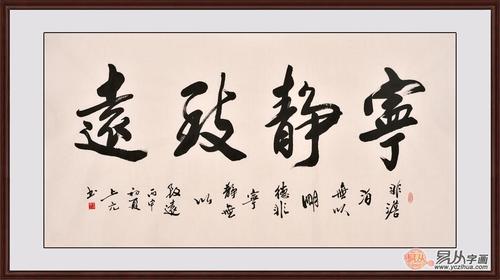 寧靜致遠
非澹泊無以明德非寧靜無以致遠
丙申初夏上元書
易从字画
www.yczihua.com